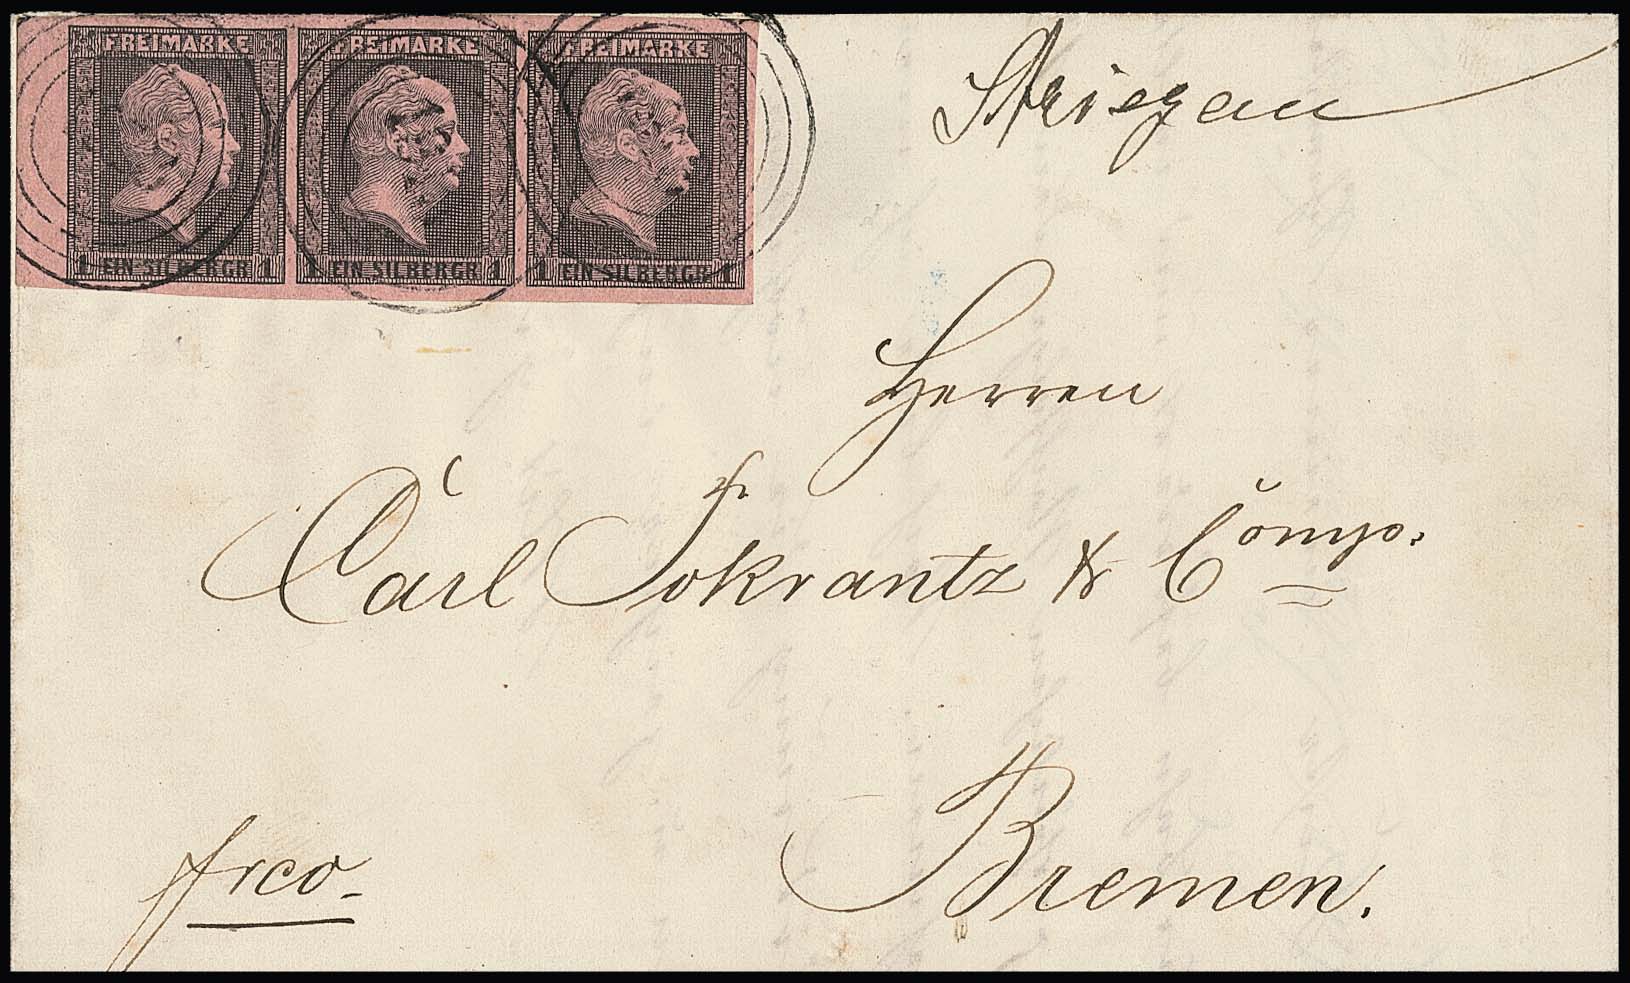 FREIMARKE FREIMARKE FREIMARKE
1 EIN SILBERGR 1 1 EIN SILBERGR 1 1 EIN SILBERGR 1
Striegau
Herren
Carl Fokrantz & Compo.
Bremen.
frco.